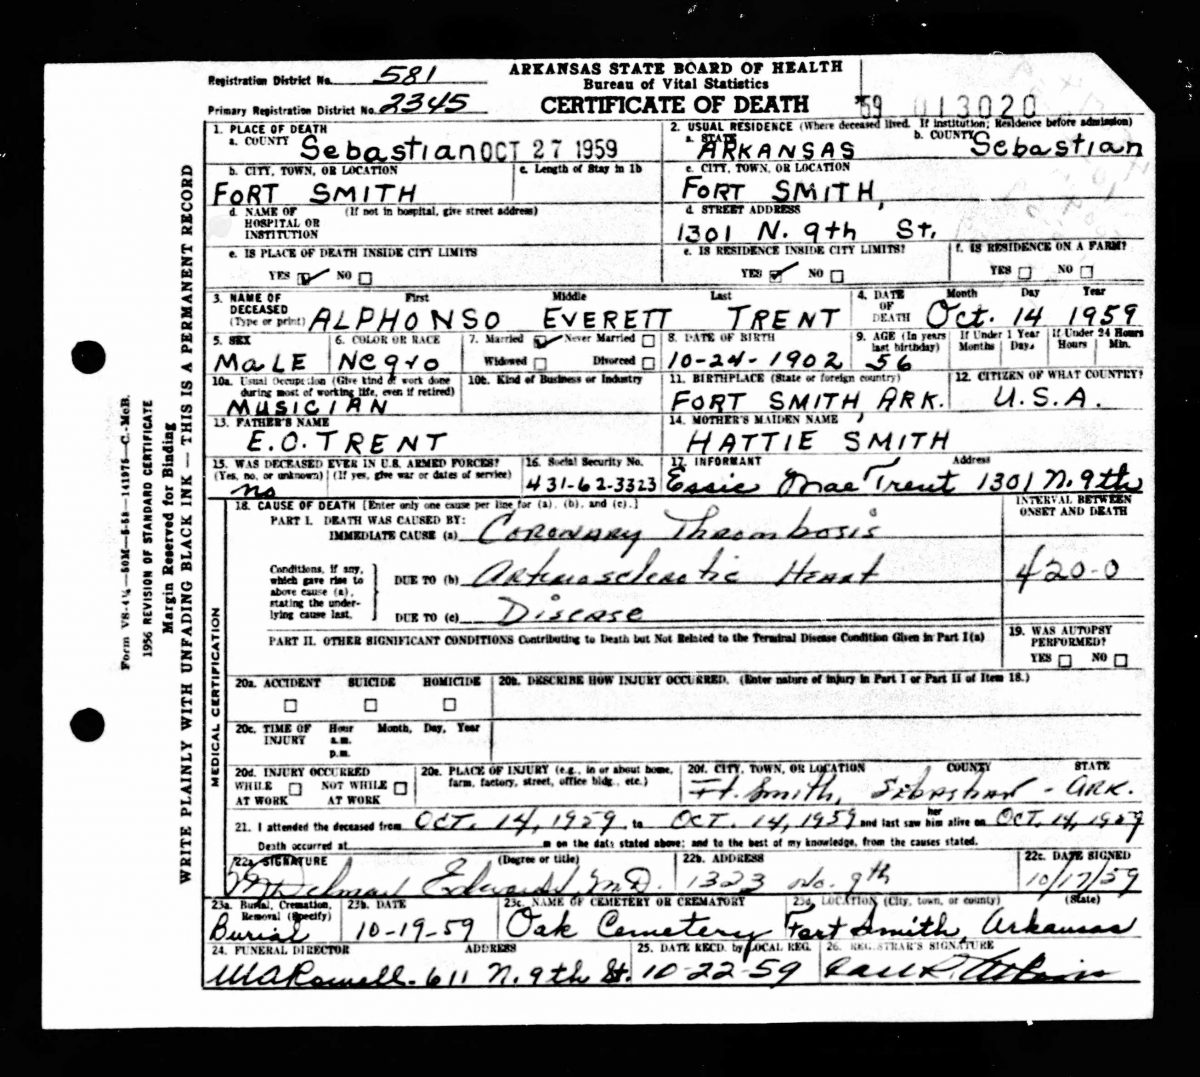 Registration District No. 581
ARKANSAS STATE BOARD OF HEALTH
Bureau of Vital Statistics
Primary Registration District No. 2345
CERTIFICATE OF DEATH
'59 013020
1. PLACE OF DEATH
a. COUNTY Sebastian OCT 27 1959
2. USUAL RESIDENCE (Where deceased lived. If institution; Residence before admission)
a. STATE ARKANSAS b. COUNTY Sebastian
b. CITY, TOWN, OR LOCATION
FORT SMITH
c. Length of Stay in 1b
c. CITY, TOWN, OR LOCATION
FORT SMITH,
d. NAME OF (If not in hospital, give street address)
HOSPITAL OR
INSTITUTION
d. STREET ADDRESS
1301 N. 9th St.
e. IS PLACE OF DEATH INSIDE CITY LIMITS
YES NO
e. IS RESIDENCE INSIDE CITY LIMITS?
YES NO
f. IS RESIDENCE ON A FARM?
YES NO
3. NAME OF DECEASED (Type or print)
First Middle Last
ALPHONSO EVERETT TRENT
4. DATE OF DEATH
Month Day Year
Oct. 14 1959
5. SEX
MaLE
6. COLOR OR RACE
Negro
7. Married Never Married
Widowed Divorced
8. DATE OF BIRTH
10-24-1902
9. AGE (In years last birthday)
56
If Under 1 Year
Months Days
If Under 24 Hours
Hours Min.
10a. Usual Occupation (Give kind of work done
during most of working life, even if retired)
MUSICIAN
10b. Kind of Business or Industry
11. BIRTHPLACE (State or foreign country)
FORT SMITH ARK.
12. CITIZEN OF WHAT COUNTRY?
U.S.A.
13. FATHER'S NAME
E.O. TRENT
14. MOTHER'S MAIDEN NAME
HATTIE SMITH
15. WAS DECEASED EVER IN U.S. ARMED FORCES?
(Yes, no, or unknown) (If yes, give war or dates of service)
no
16. Social Security No.
431-62-3323
17. INFORMANT Address
Essie Mae Trent 1301 N. 9th
18. CAUSE OF DEATH [Enter only one cause per line for (a), (b), and (c).]
INTERVAL BETWEEN
ONSET AND DEATH
PART I. DEATH WAS CAUSED BY:
IMMEDIATE CAUSE (a) Coronary Thrombosis
Conditions, if any,
which gave rise to
above cause (a),
stating the under-
lying cause last.
DUE TO (b) Arteriosclerotic Heart
420-0
DUE TO (c) Disease
PART II. OTHER SIGNIFICANT CONDITIONS Contributing to Death but Not Related to the Terminal Disease Condition Given in Part I(a)
19. WAS AUTOPSY
PERFORMED?
YES NO
20a. ACCIDENT SUICIDE HOMICIDE
20b. DESCRIBE HOW INJURY OCCURRED. (Enter nature of injury in Part I or Part II of Item 18.)
20c. TIME OF INJURY
Hour Month, Day, Year
a.m.
p.m.
20d. INJURY OCCURRED
WHILE AT WORK NOT WHILE AT WORK
20e. PLACE OF INJURY (e.g., in or about home,
farm, factory, street, office bldg., etc.)
20f. CITY, TOWN, OR LOCATION COUNTY STATE
Ft. Smith, Sebastian - ARK.
21. I attended the deceased from OCT. 14, 1959 to OCT. 14, 1959 and last saw her him alive on OCT. 14, 1959
Death occurred at m on the date stated above; and to the best of my knowledge, from the causes stated.
22a. SIGNATURE (Degree or title)
Edwards M.D.
22b. ADDRESS
1323 No. 9th
22c. DATE SIGNED
10/17/59
23a. Burial, Cremation,
Removal (Specify)
Burial
23b. DATE
10-19-59
23c. NAME OF CEMETERY OR CREMATORY
Oak Cemetery
23d. LOCATION (City, town, or county) (State)
Fort Smith, Arkansas
24. FUNERAL DIRECTOR ADDRESS
W.A. Rowell. 611 N. 9th St.
25. DATE RECD. by LOCAL REG.
10-22-59
26. REGISTRAR'S SIGNATURE
MEDICAL CERTIFICATION
WRITE PLAINLY WITH UNFADING BLACK INK — THIS IS A PERMANENT RECORD
Margin Reserved for Binding
1956 REVISION OF STANDARD CERTIFICATE